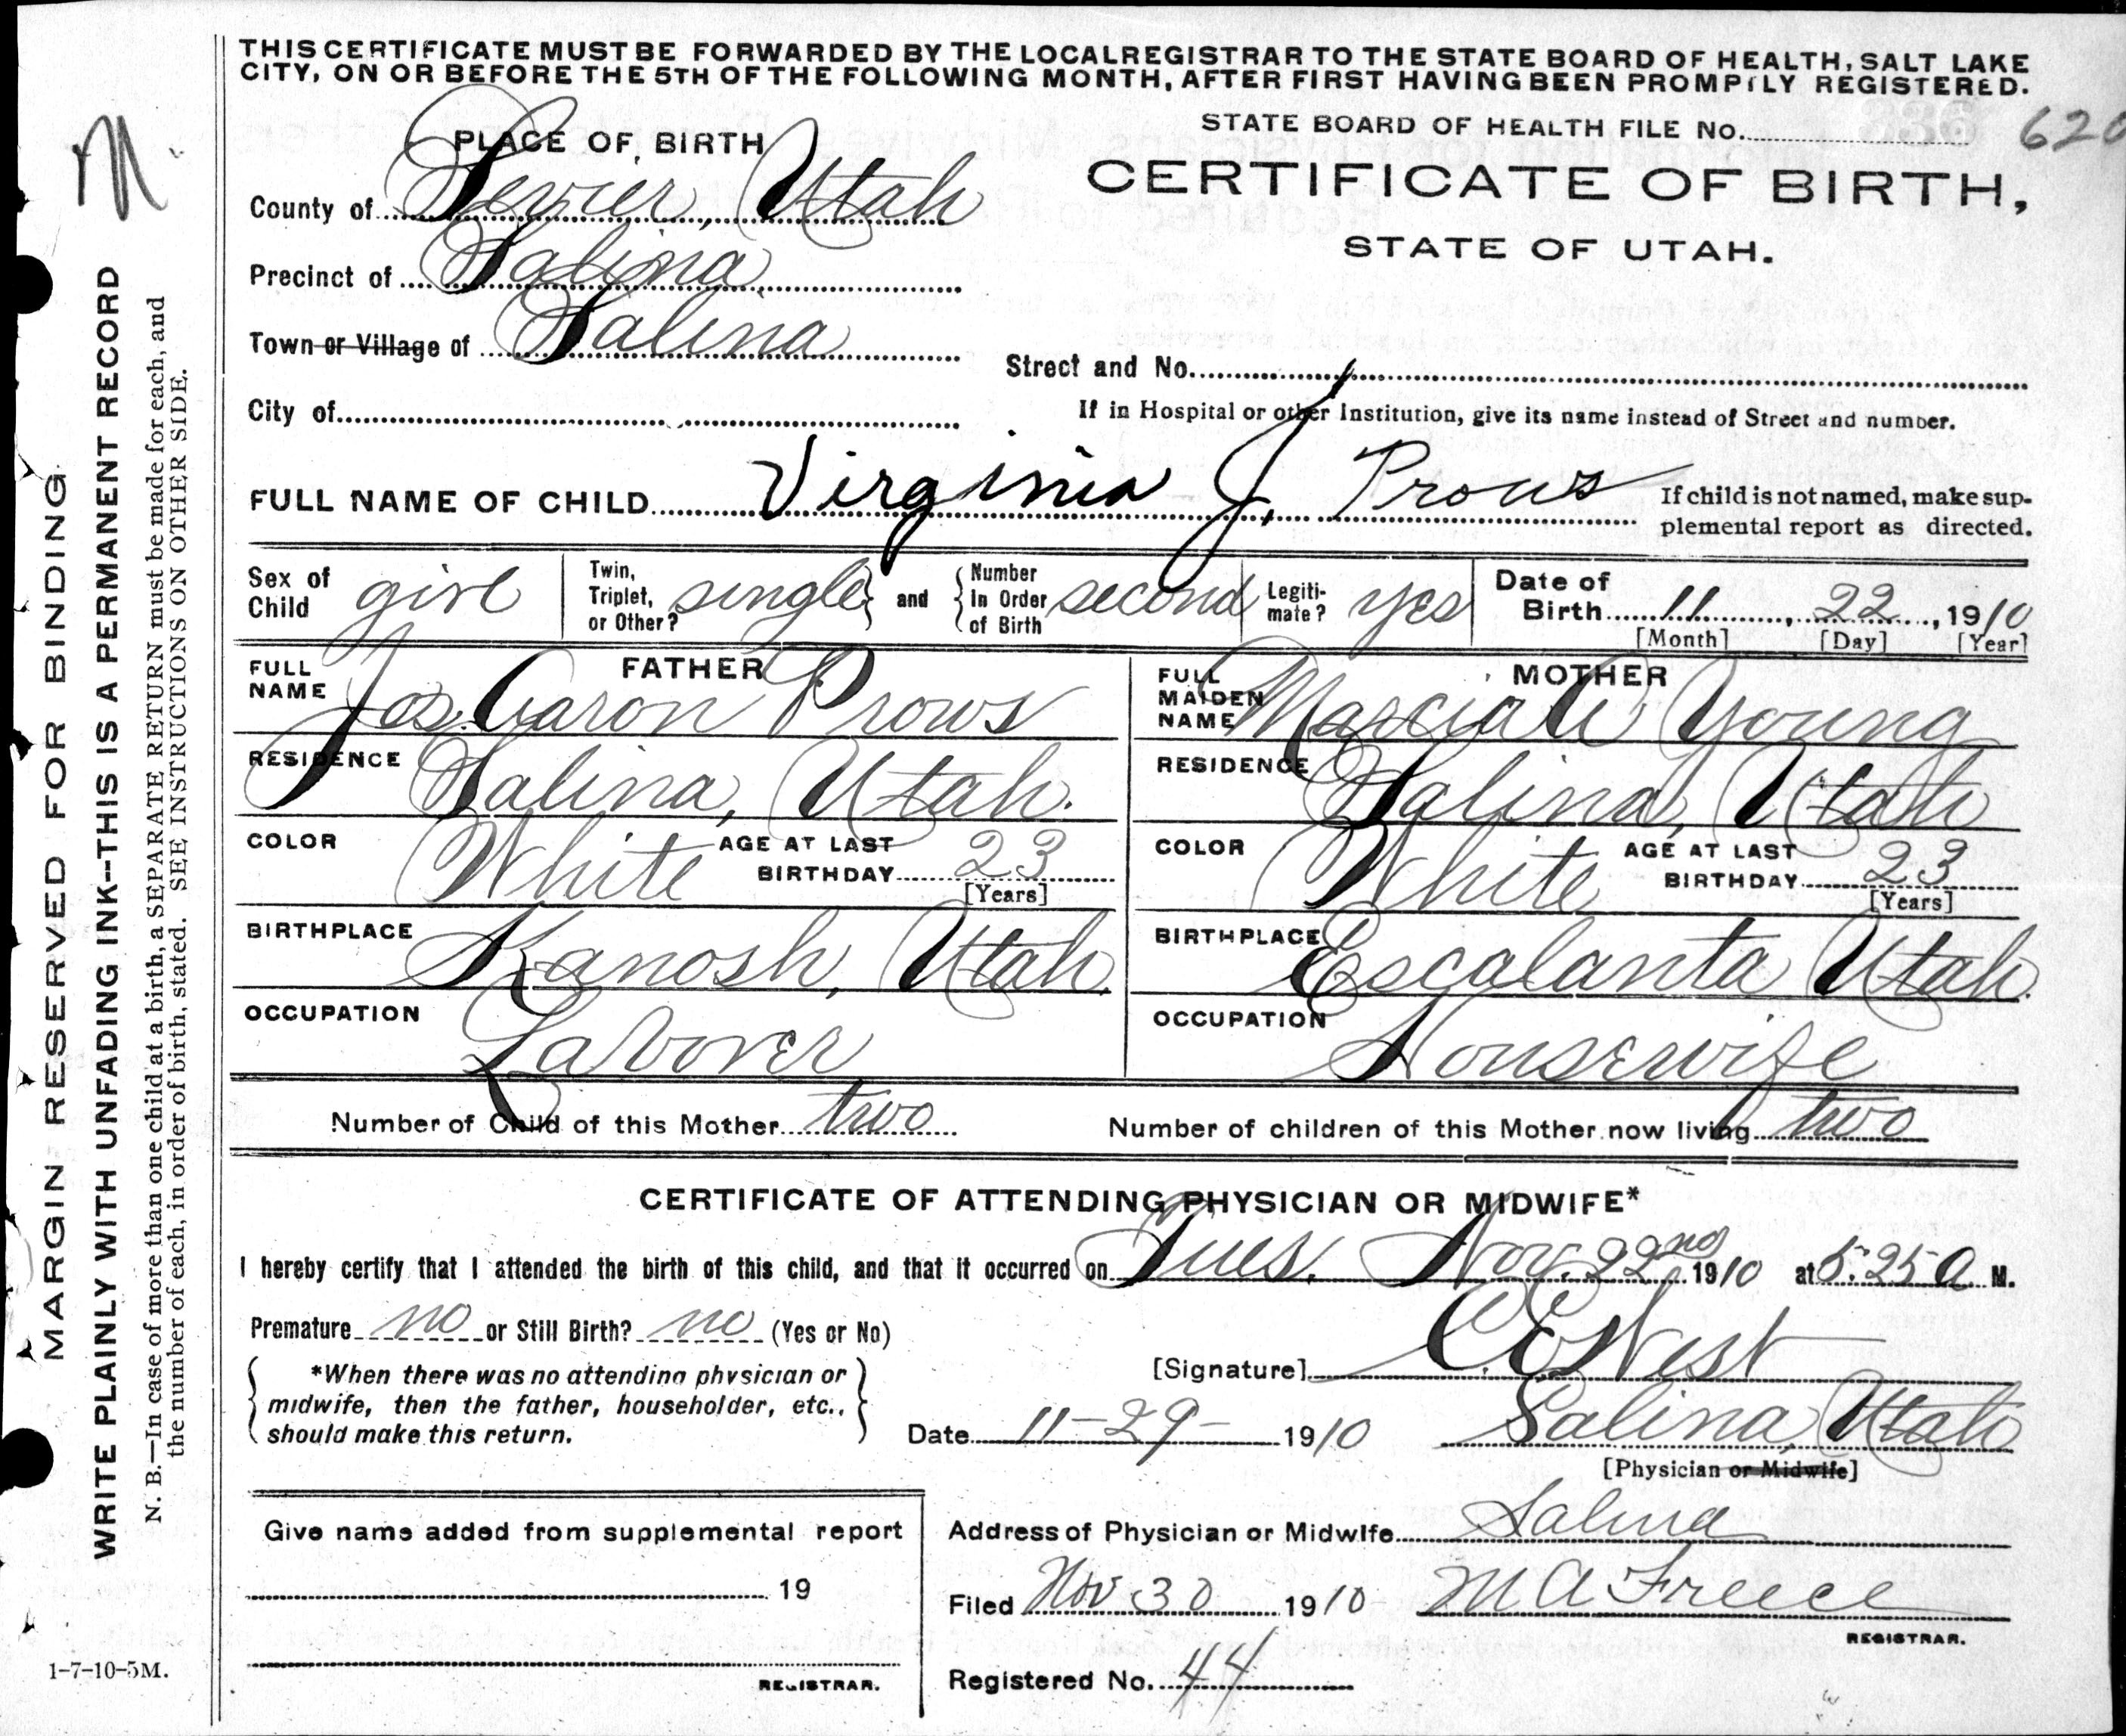 THIS CERTIFICATE MUST BE FORWARDED BY THE LOCAL REGISTRAR TO THE STATE BOARD OF HEALTH, SALT LAKE
CITY, ON OR BEFORE THE 5TH OF THE FOLLOWING MONTH, AFTER FIRST HAVING BEEN PROMPTLY REGISTERED.
M.
MARGIN RESERVED FOR BINDING
WRITE PLAINLY WITH UNFADING INK--THIS IS A PERMANENT RECORD
N. B.—In case of more than one child at a birth, a SEPARATE RETURN must be made for each, and
the number of each, in order of birth, stated. SEE INSTRUCTIONS ON OTHER SIDE.
PLACE OF BIRTH
STATE BOARD OF HEALTH FILE No. 620
County of Sevier, Utah
CERTIFICATE OF BIRTH,
STATE OF UTAH.
Precinct of Salina
Town or Village of Salina
Street and No.
City of
If in Hospital or other Institution, give its name instead of Street and number.
FULL NAME OF CHILD Virginia J. Prows
If child is not named, make sup-
plemental report as directed.
Sex of Child girl
Twin, Triplet, or Other? single and Number In Order of Birth second
Legiti-mate? yes
Date of Birth 11, 22, 1910
[Month] [Day] [Year]
FATHER
FULL NAME Jos. Caron Prows
RESIDENCE Salina, Utah.
COLOR White AGE AT LAST BIRTHDAY 23
[Years]
BIRTHPLACE Kanosh, Utah.
OCCUPATION Laborer
MOTHER
FULL MAIDEN NAME Marcia A. Young
RESIDENCE Salina, Utah
COLOR White AGE AT LAST BIRTHDAY 23
[Years]
BIRTHPLACE Escalanta Utah.
OCCUPATION Housewife
Number of Child of this Mother two
Number of children of this Mother now living two
CERTIFICATE OF ATTENDING PHYSICIAN OR MIDWIFE*
I hereby certify that I attended the birth of this child, and that it occurred on Tues. Nov. 22nd 1910 at 5:25 a M.
Premature no or Still Birth? no (Yes or No)
*When there was no attending physician or
midwife, then the father, householder, etc.,
should make this return.
[Signature] West
Date 11-29- 1910
Salina, Utah
[Physician or Midwife]
Give name added from supplemental report
19
REGISTRAR.
Address of Physician or Midwife Salina
Filed Nov 30 1910 M A Freece
REGISTRAR.
Registered No. 44
1-7-10-5M.